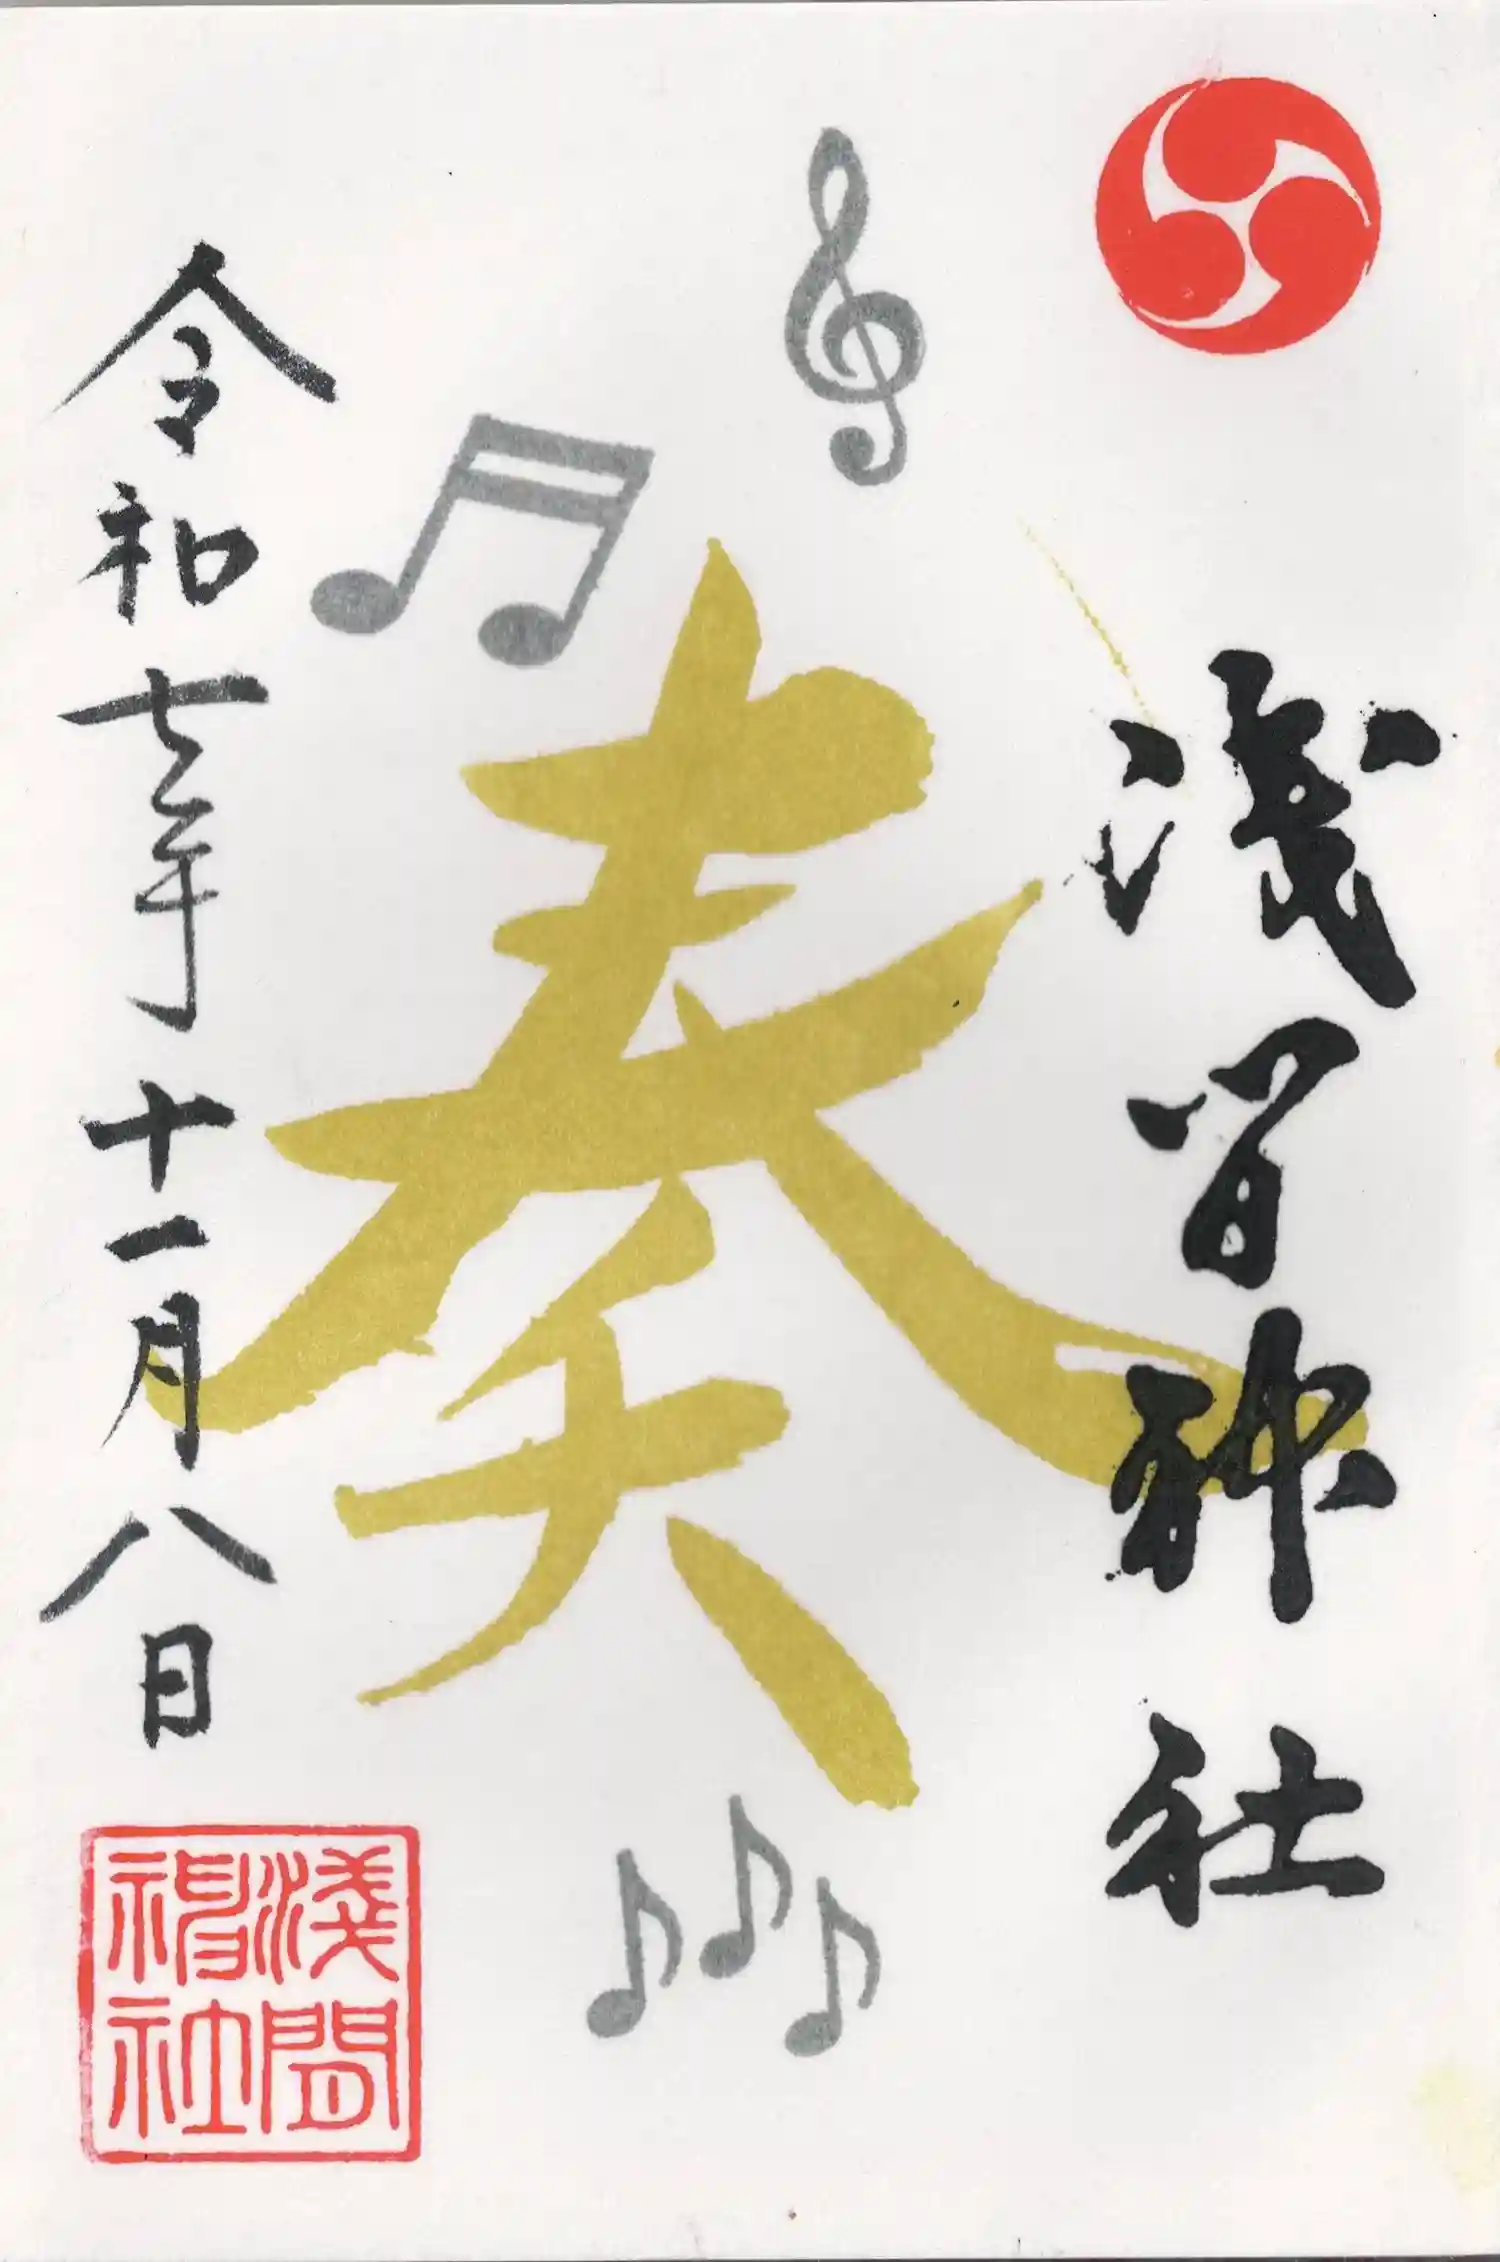 浅間神社
奏
令和七年十一月八日
淺間
神社